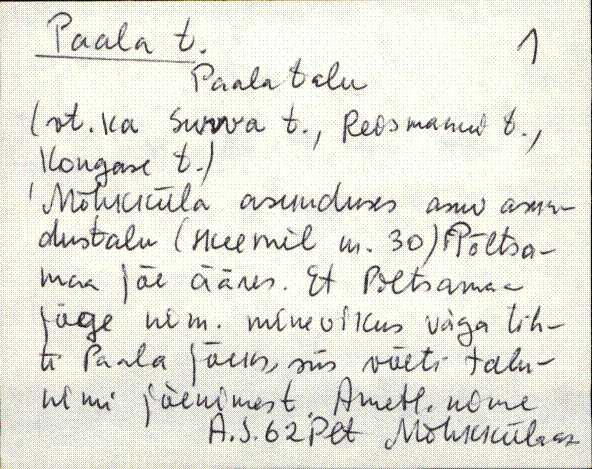 Paala t.
1
Paala talu
(vt. ka Surva t., Reosmanni t.,
Kongase t.)
Mõhkküla asunduses asuv asun-
dustalu (skeemil nr. 30) Põltsa-
maa jõe ääres. Et Põltsamaa
jõge nim. minevikus väga tih-
ti Paala jõeks, siis võeti talu-
nimi jõenimest. Ametl. nime
A.S. 62 Plt Mõhkkülas